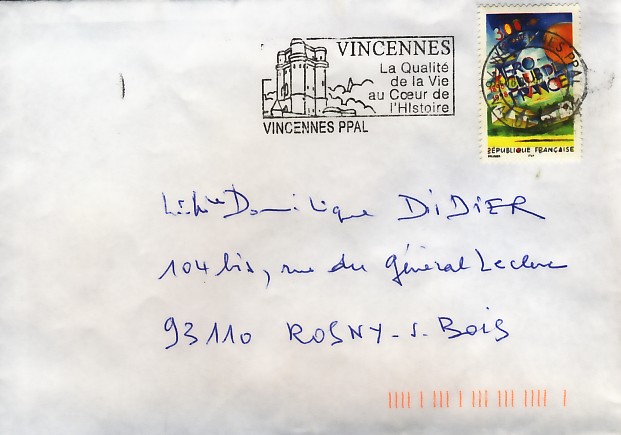 VINCENNES
La Qualité
de la Vie
au Cœur de
l'HIstoire
VINCENNES PPAL
3,00
MERCI
FRANCE
RÉPUBLIQUE FRANÇAISE
Dominique DiDiER
104 bis, rue du Général Leclerc
93110 ROSNY-s-Bois